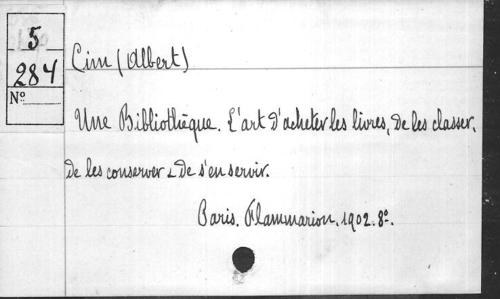 5
284
No
Cim (Albert)
Une Bibliothèque. L'art d'acheter les livres, de les classer,
de les conserver & de s'en servir.
Paris. Flammarion. 1902. 8o.